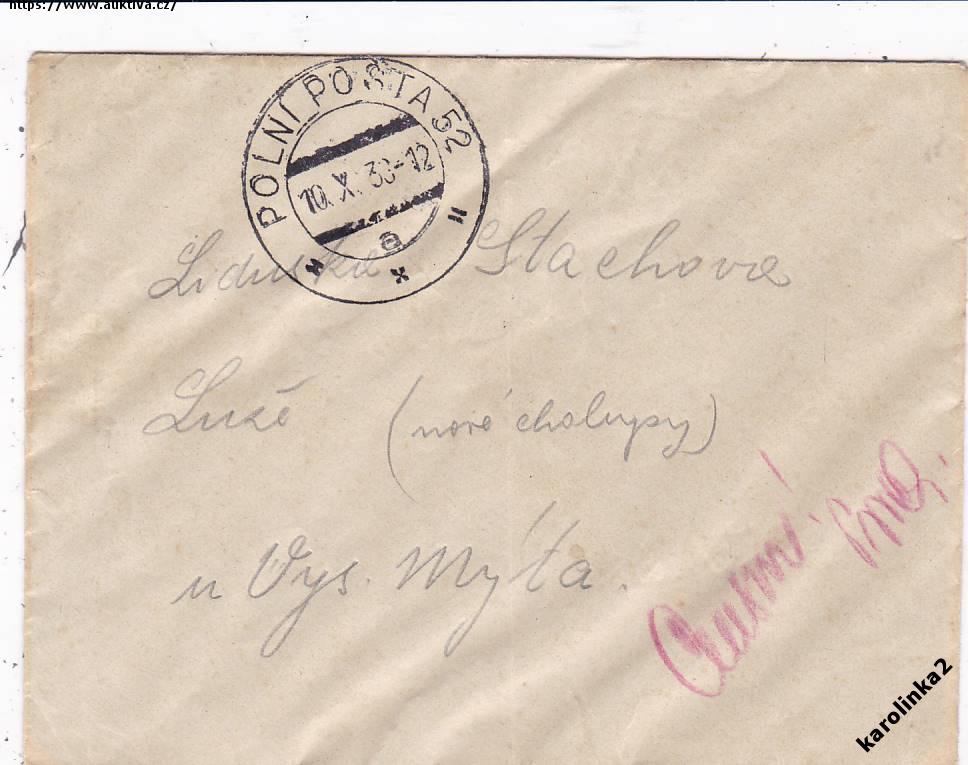 https://www.auktiva.cz/
POLNÍ POŠTA 52
10.X.38-12
a
Liduška Stachova
Luže (nové chalupy)
u Vys. Mýta.
karolinka2